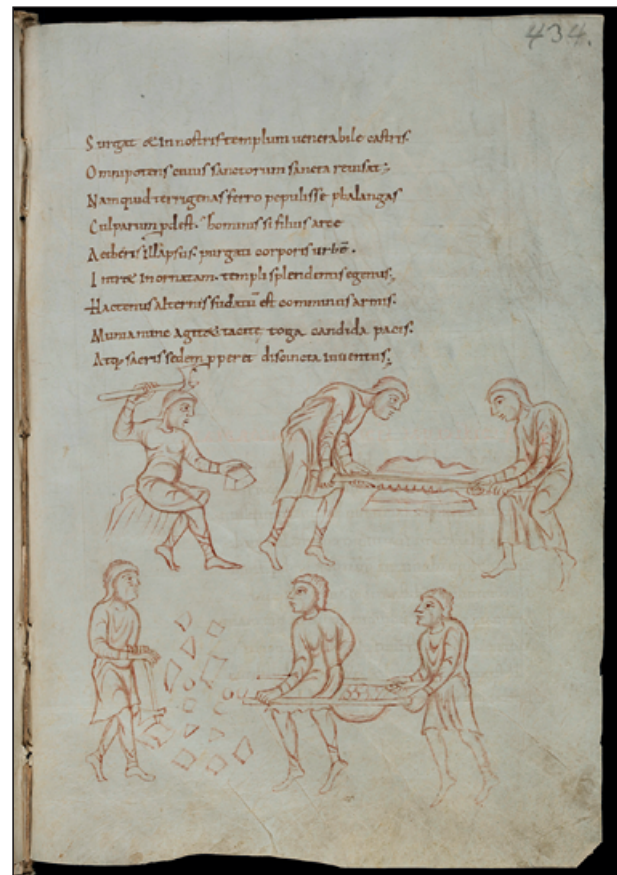 434.
Surgat & in nostris templum venerabile castris.
Omnipotens cuius sanctorum sancta revisat;
Nam quid terrigenas ferro pepulisse phalangas
Culparum pdest. hominis si filius arce
Aetheris illapsus. purgati corporis urbē.
Intr& inornatam. templi splendentis egenus;
Hactenus alternis sudatū est comminus armis.
Munia nunc agit& tacitę toga candida pacis.
Atq; sacris sedem pperet discincta iuventus;